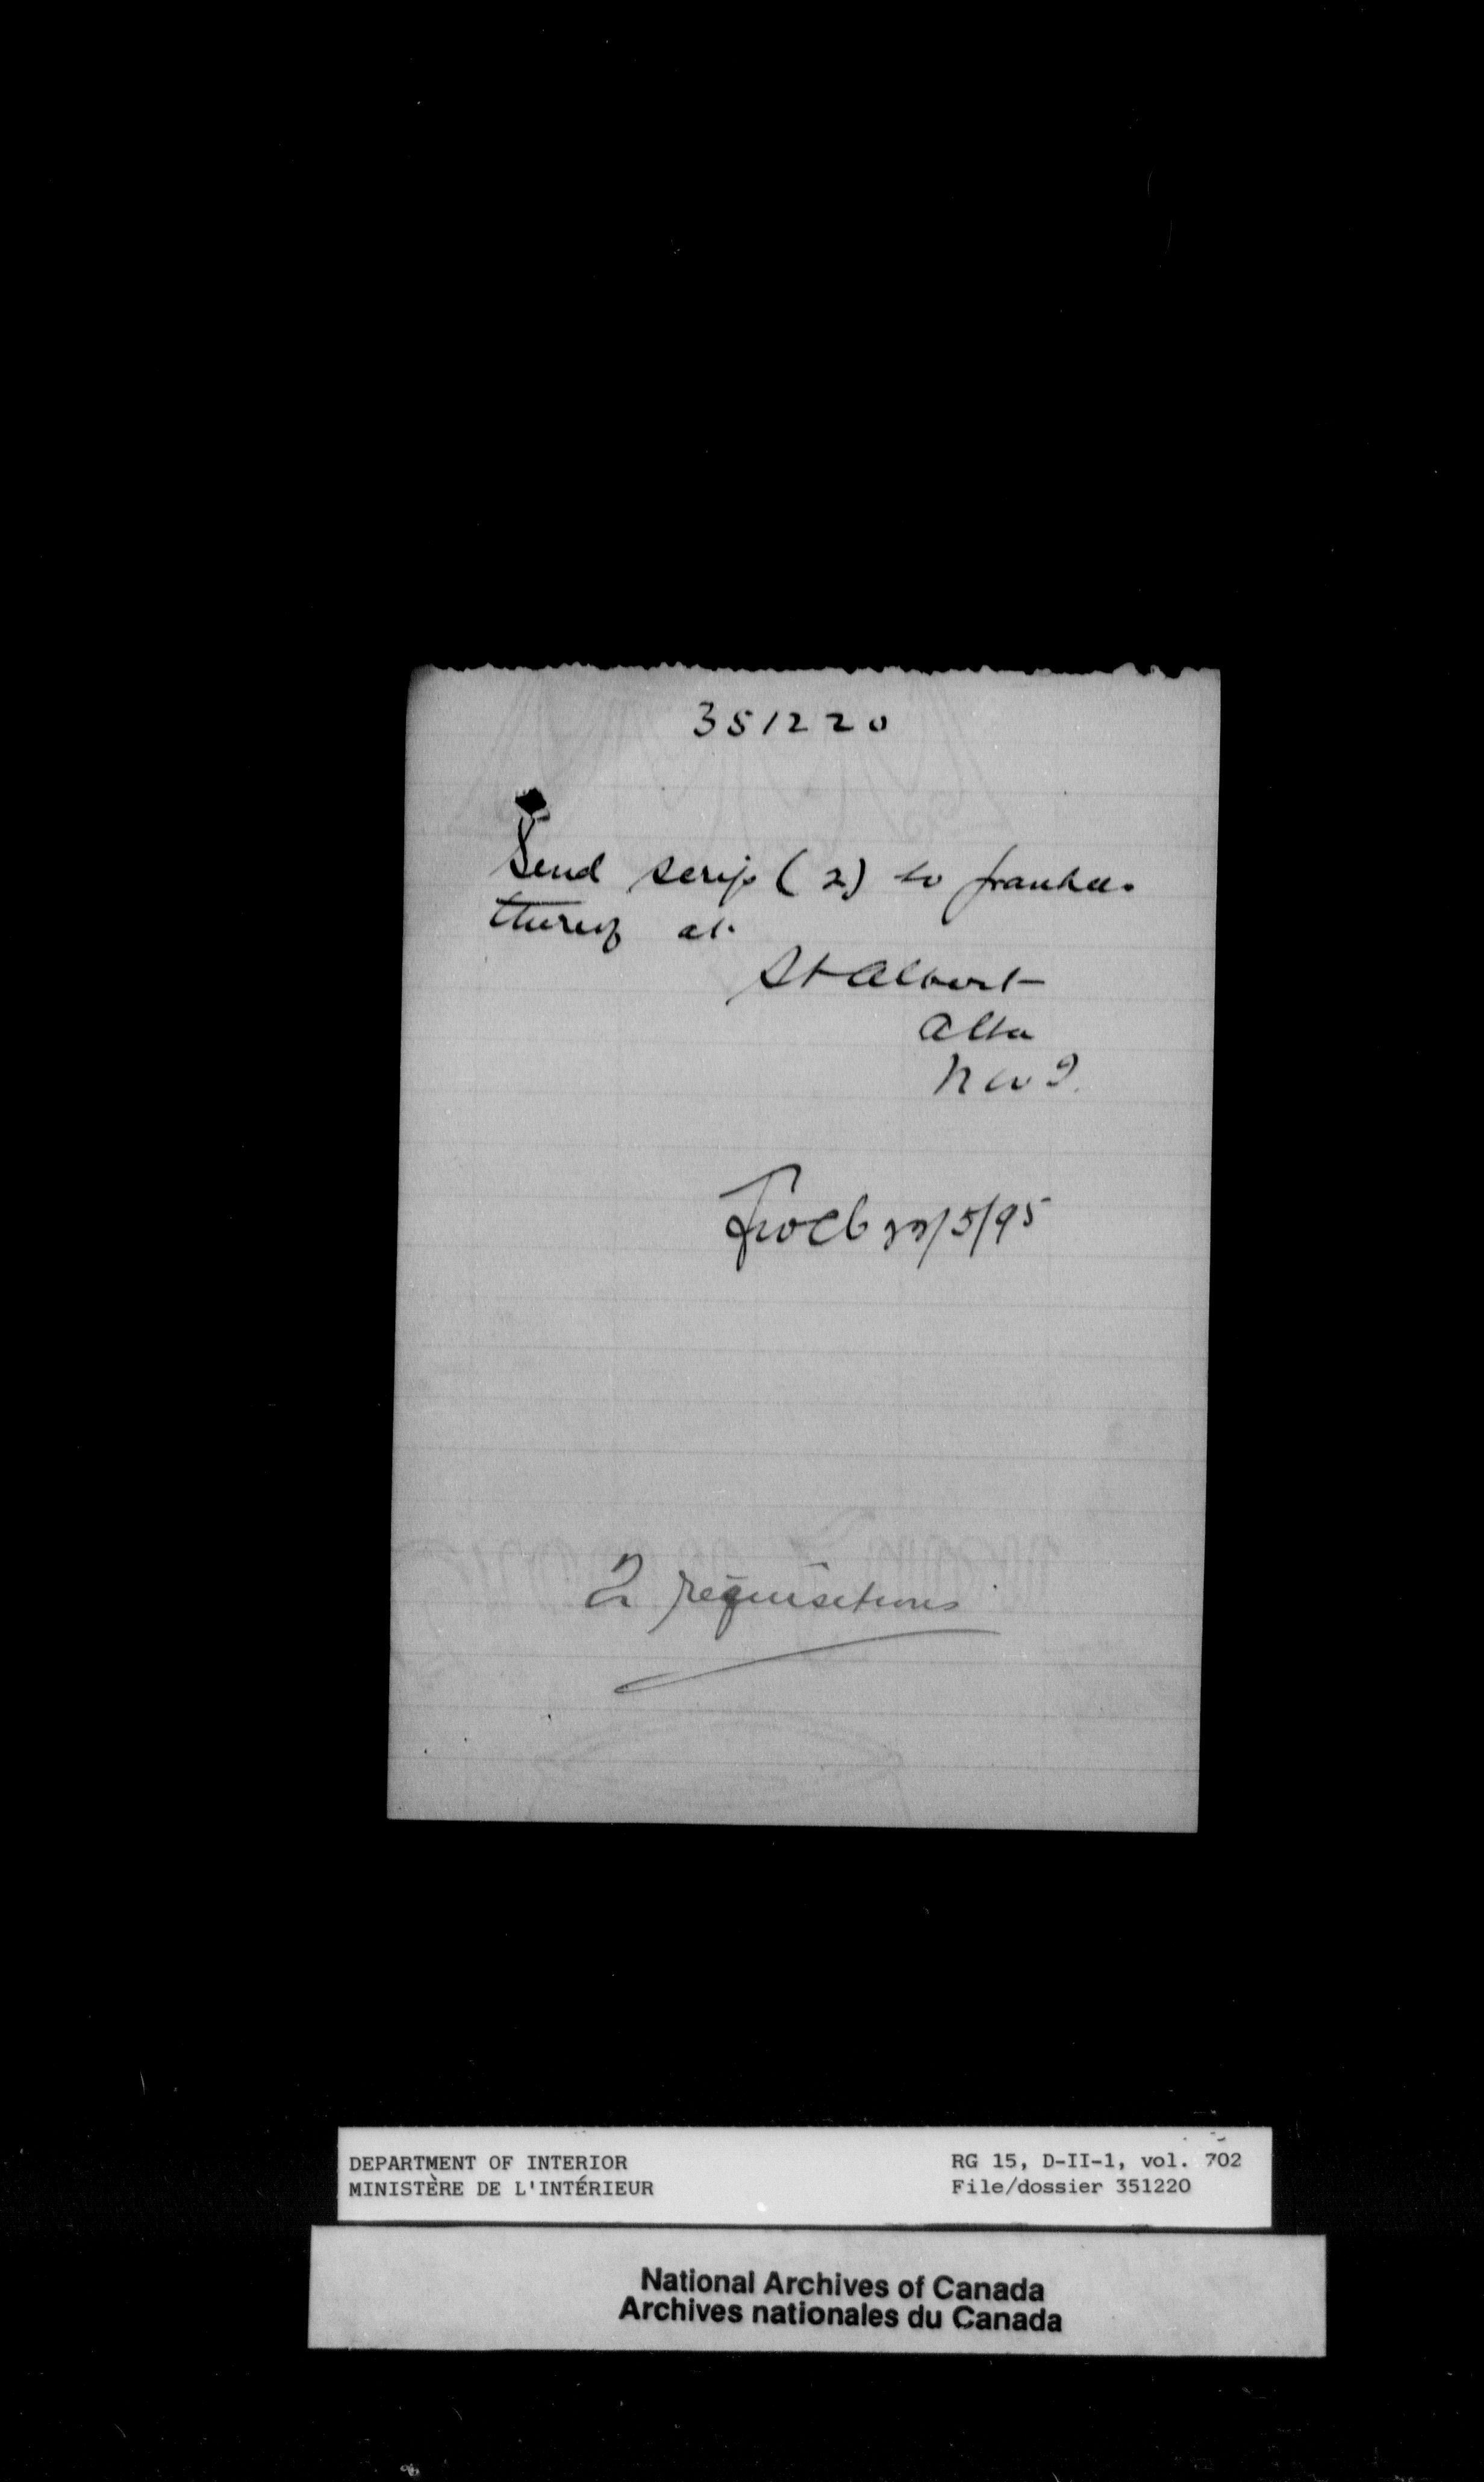 351220
Send scrip (2) to grantee
thereof at
St Albert
Alta
N W T.
/5/95
2 requisitions
DEPARTMENT OF INTERIOR
MINISTÈRE DE L'INTÉRIEUR
RG 15, D-II-1, vol. 702
File/dossier 351220
National Archives of Canada
Archives nationales du Canada